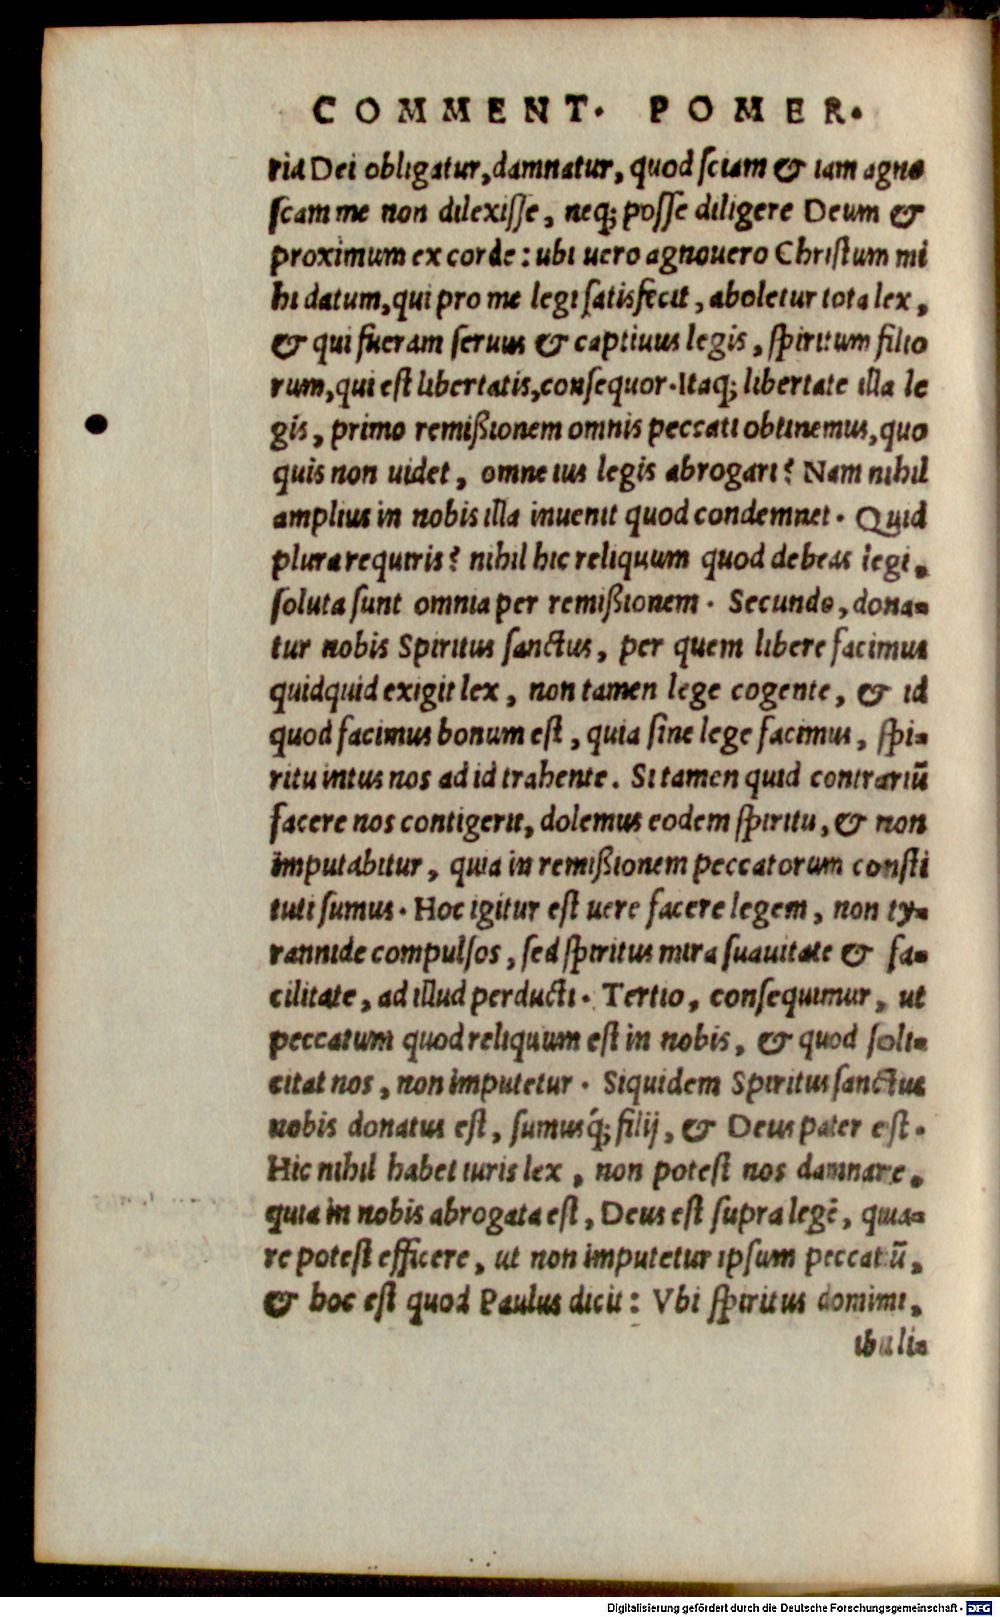 COMMENT. POMER.
ria Dei obligatur, damnatur, quod sciam & iam agno
scam me non dilexisse, neq; posse diligere Deum &
proximum ex corde: ubi uero agnouero Christum mi
hi datum, qui pro me legi satisfecit, aboletur tota lex,
& qui fueram seruus & captiuus legis, spiritum filio
rum, qui est libertatis, consequor. Itaq; libertate illa le
gis, primo remißionem omnis peccati obtinemus, quo
quis non uidet, omne ius legis abrogari? Nam nihil
amplius in nobis illa inuenit quod condemnet. Quid
plura requiris? nihil hic reliquum quod debeas legi,
soluta sunt omnia per remißionem. Secundo, dona-
tur nobis Spiritus sanctus, per quem libere facimus
quidquid exigit lex, non tamen lege cogente, & id
quod facimus bonum est, quia sine lege facimus, spi-
ritu intus nos ad id trahente. Si tamen quid contrariũ
facere nos contigerit, dolemus eodem spiritu, & non
imputabitur, quia in remißionem peccatorum consti
tuti sumus. Hoc igitur est uere facere legem, non ty-
rannide compulsos, sed spiritus mira suauitate & fa-
cilitate, ad illud perducti. Tertio, consequimur, ut
peccatum quod reliquum est in nobis, & quod soli-
citat nos, non imputetur. Siquidem Spiritus sanctus
nobis donatus est, sumusq́; filij, & Deus pater est.
Hic nihil habet iuris lex, non potest nos damnare,
quia in nobis abrogata est, Deus est supra legẽ, qua-
re potest efficere, ut non imputetur ipsum peccatũ,
& hoc est quod Paulus dicit: Vbi spiritus domini,
ibi li-
Digitalisierung gefördert durch die Deutsche Forschungsgemeinschaft - DFG